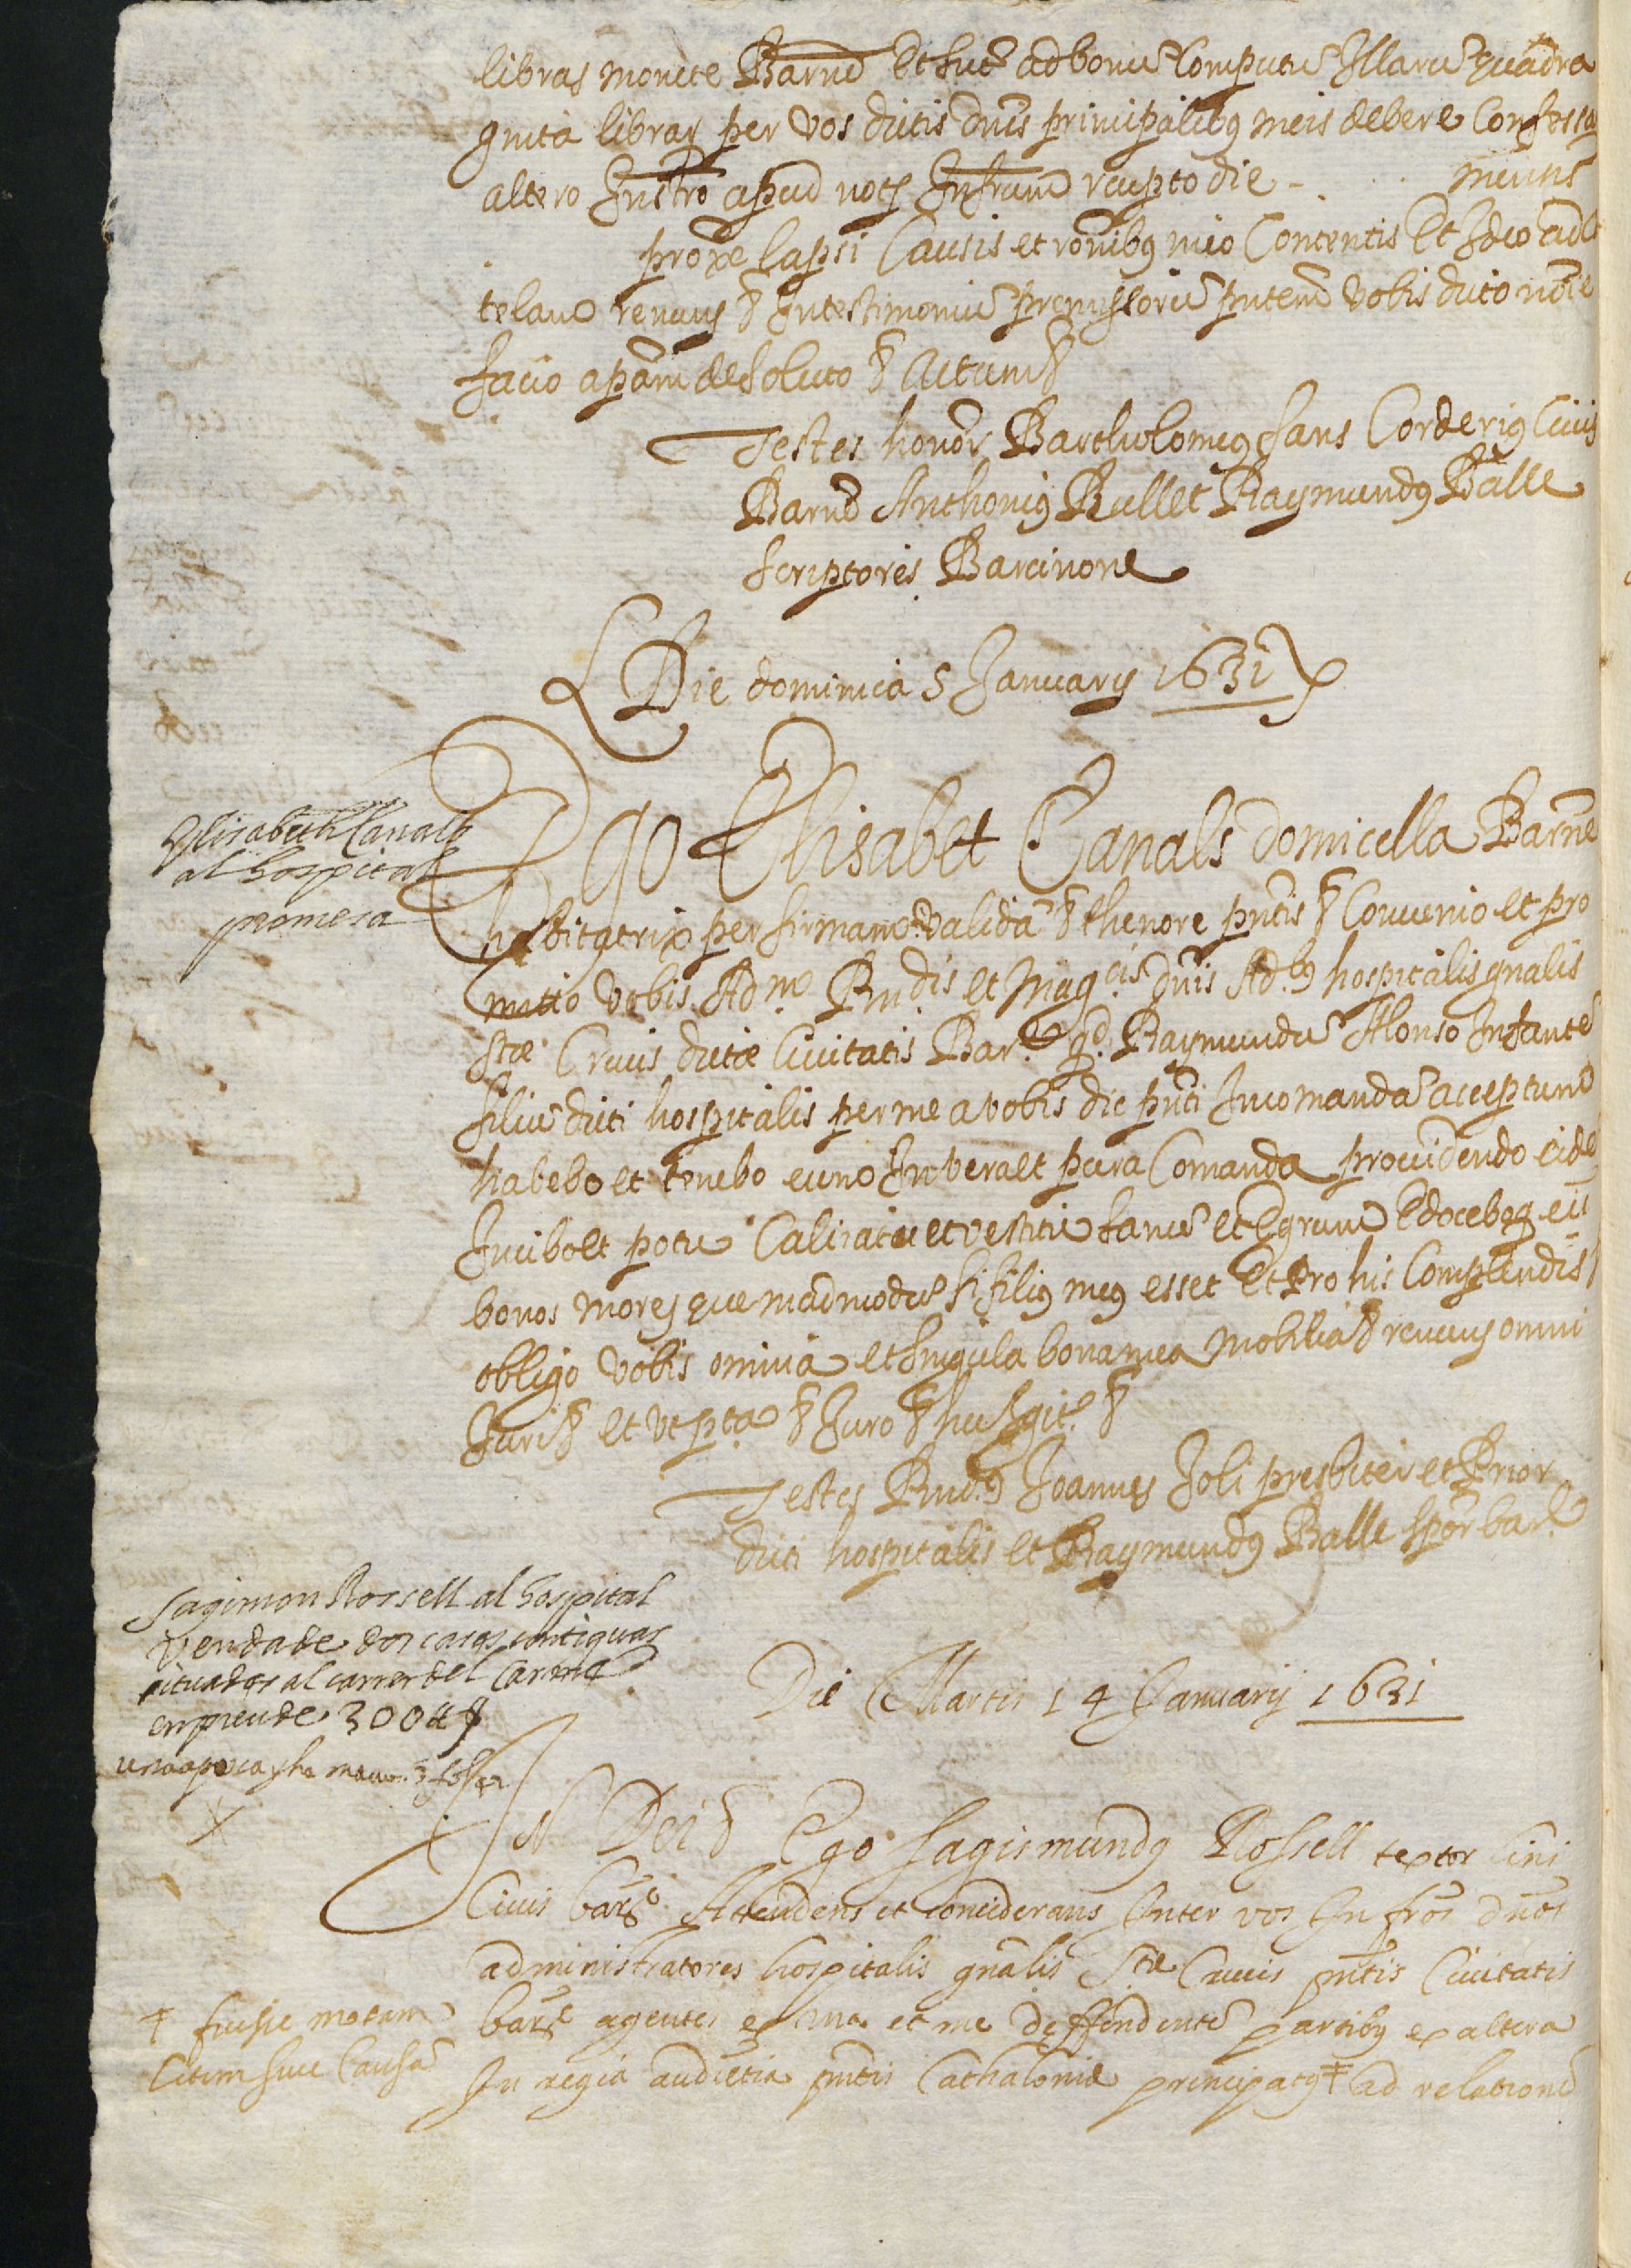 libras monete Barne Et sut ad bonu Computu Illaru quadra
ginta libraꝝ per vos dictis dnis principalibꝰ meis debere Confessa
altero Instro apud notm Infrum recepto die - mensis
proxe lapsi Causis et ronibꝰ in eo Contentis Et Ideo
renuns & In testimoniu premissoru pntem vobis dicto noie
facio apam de soluto & Actum &
Testes honor Bartholomeꝰ Sans Corderiꝰ Civis
Barne Anthoniꝰ Bullet Raymundꝰ Balle
scriptores Barcinone
Die dominica 5 Januarij 1631
Elisabeth Canals
al hospital
promesa
Ego Elisabet Canals domicella Barne
habitatrix per firmam & valida & thenore pntis & Convenio et pro
mitto vobis Adm. Rndis et Magcis dnis Ad.bꝰ hospitalis gnalis
Stæ Crucis dictæ Civitatis Bare qd Raymundu Alonso Infante
filiu dicti hospitalis per me a vobis die pnti In comanda acceptum
habebo et tenebo eum In vera et pura Comanda providendo eide
In cibo et potu Calciatu et vestitu sanu et Egrum Edoceboqꝫ eu
bonos mores quemadmodu si filiꝰ meꝰ esset Et Pro his Complendis
obligo vobis omnia et singula bona mea mobilia & renuns omni
Juri & et ut pta & Juro & hec igit. &
Testes Rndꝰ Joannes Joli presbiter et Prior
dicti hospitalis et Raymundꝰ Balle sptor bare
Sagimon Rossell al hospital
Venda de dos cases contiguas
situades al carrer del Carme
en preu de 300 ll s
una apoca
Die Martis 14 Januarij 1631
In Dei & Ego Sagismundꝰ Rossell textor lini
Civis bare Attendens et considerans Inter vos Infros dnos
administratores hospitalis gnalis Ste Crucis pntis Civitatis
bare agentes ex una et me deffendente partibꝰ ex altera
In regia audietia pntis Cathaloniæ principatꝰ ‡ ad relatione
‡ fuisse motam
litem sive Causa